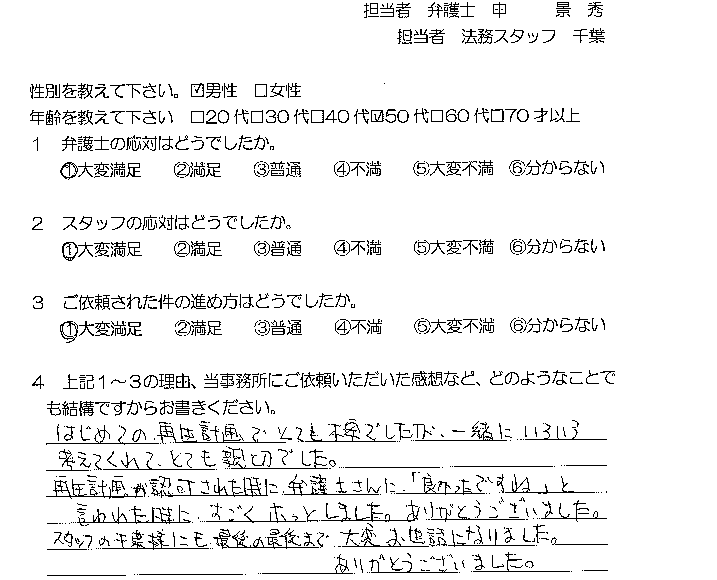 担当者 弁護士 申 景 秀
担当者 法務スタッフ 千葉
性別を教えて下さい。☑男性 □女性
年齢を教えて下さい □20代□30代□40代☑50代□60代□70才以上
1 弁護士の応対はどうでしたか。
①大変満足 ②満足 ③普通 ④不満 ⑤大変不満 ⑥分からない
2 スタッフの応対はどうでしたか。
①大変満足 ②満足 ③普通 ④不満 ⑤大変不満 ⑥分からない
3 ご依頼された件の進め方はどうでしたか。
①大変満足 ②満足 ③普通 ④不満 ⑤大変不満 ⑥分からない
4 上記1~3の理由、当事務所にご依頼いただいた感想など、どのようなことで
も結構ですからお書きください。
はじめての、再生計画で とても不安でしたが、一緒に いろいろ
考えてくれて、とても 親切でした。
再生計画が認可された時に、弁護士さんに、「良かったですね」と
言われた時に すごく ホッとしました。ありがとうございました。
スタッフの千葉様にも、最後の最後まで 大変 お世話になりました。
ありがとうございました。